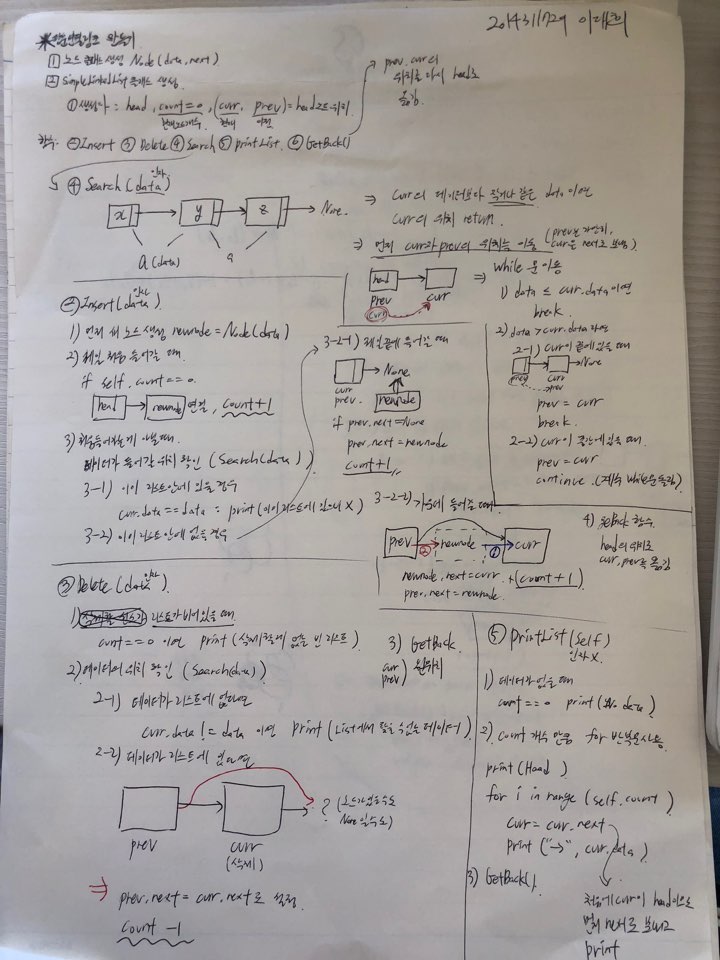 2014311729 이태희
*단순연결리스트 만들기
1 노드 클래스 생성 Node(data, next)
2 SimpleLinkedList 클래스 생성
① 생성자 : head, count=0, (curr, prev) = head로 위치
현재 이전
prev, curr의
위치를 다시 head로
옮김
함수: ② Insert ③ Delete ④ Search ⑤ printList ⑥ GetBack()
④ Search(data)
인자
x y z None
a(data) a
⇒ curr의 데이터보다 작거나 같은 data 이면
curr의 위치 return.
⇒ 먼저 curr과 prev의 위치를 이동 (prev는 가만히,
curr은 next로 보냄)
head
prev curr
curr
⇒ while 문 이용
1) data ≤ curr.data 이면
break.
2) data > curr.data 라면
2-1) curr이 끝에 있을 때
None
prev curr
prev
prev = curr
break.
2-2) curr이 중간에 있을 때
prev = curr
continue. (계속 while문 돌림)
② Insert(data)
인자
1) 먼저 새 노드 생성 newnode = Node(data)
2) 제일 처음 들어갈 때.
if self.count == 0.
head newnode 연결, count+1
3) 처음 들어가는게 아닐 때.
데이터가 들어갈 위치 확인 (Search(data))
3-1) 이미 리스트안에 있을 경우
curr.data == data : print(이미 리스트에 있으니 X)
3-2) 이미 리스트 안에 없을 경우
3-2-1) 제일 끝에 들어갈 때
None
curr
prev. newnode
if prev.next = None
prev.next = newnode
count+1
3-2-2) 가운데 들어갈 때
prev newnode curr
② ①
newnode.next = curr. + (count+1)
prev.next = newnode.
4) 함수.
head의 위치로
curr, prev를 옮김
③ Delete(data)
인자
1) 리스트가 비어있을 때
count == 0 이면 print(삭제할게 없는 빈 리스트)
2) 데이터의 위치 확인 (Search(data))
2-1) 데이터가 리스트에 없다면
curr.data != data 이면 print(List에서 찾을 수 없는 데이터)
2-2) 데이터가 리스트에 있다면
? (노드가 있을 수도
None 일 수도)
prev curr
(삭제)
⇒ prev.next = curr.next로 설정.
count -1
3) GetBack.
curr
prev) 원위치
⑤ printList(self)
인자 X.
1) 데이터가 없을 때
count == 0 print(No data)
2) count 개수 만큼 for 반복문 사용.
print(Head)
for i in range(self.count)
curr = curr.next
print("→", curr.data)
3) GetBack().
처음에 curr이 head이므로
먼저 next로 보내고
print